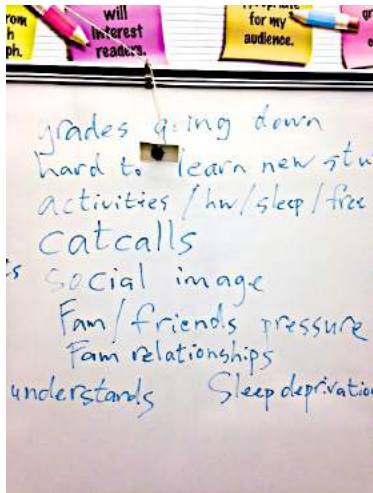 will
interest
readers.
for my
audience.
ph.
grades going down
hard to learn new
activities / hw / sleep / free
catcalls
social image
Fam / friends pressure
Fam relationships
understands Sleep deprivation